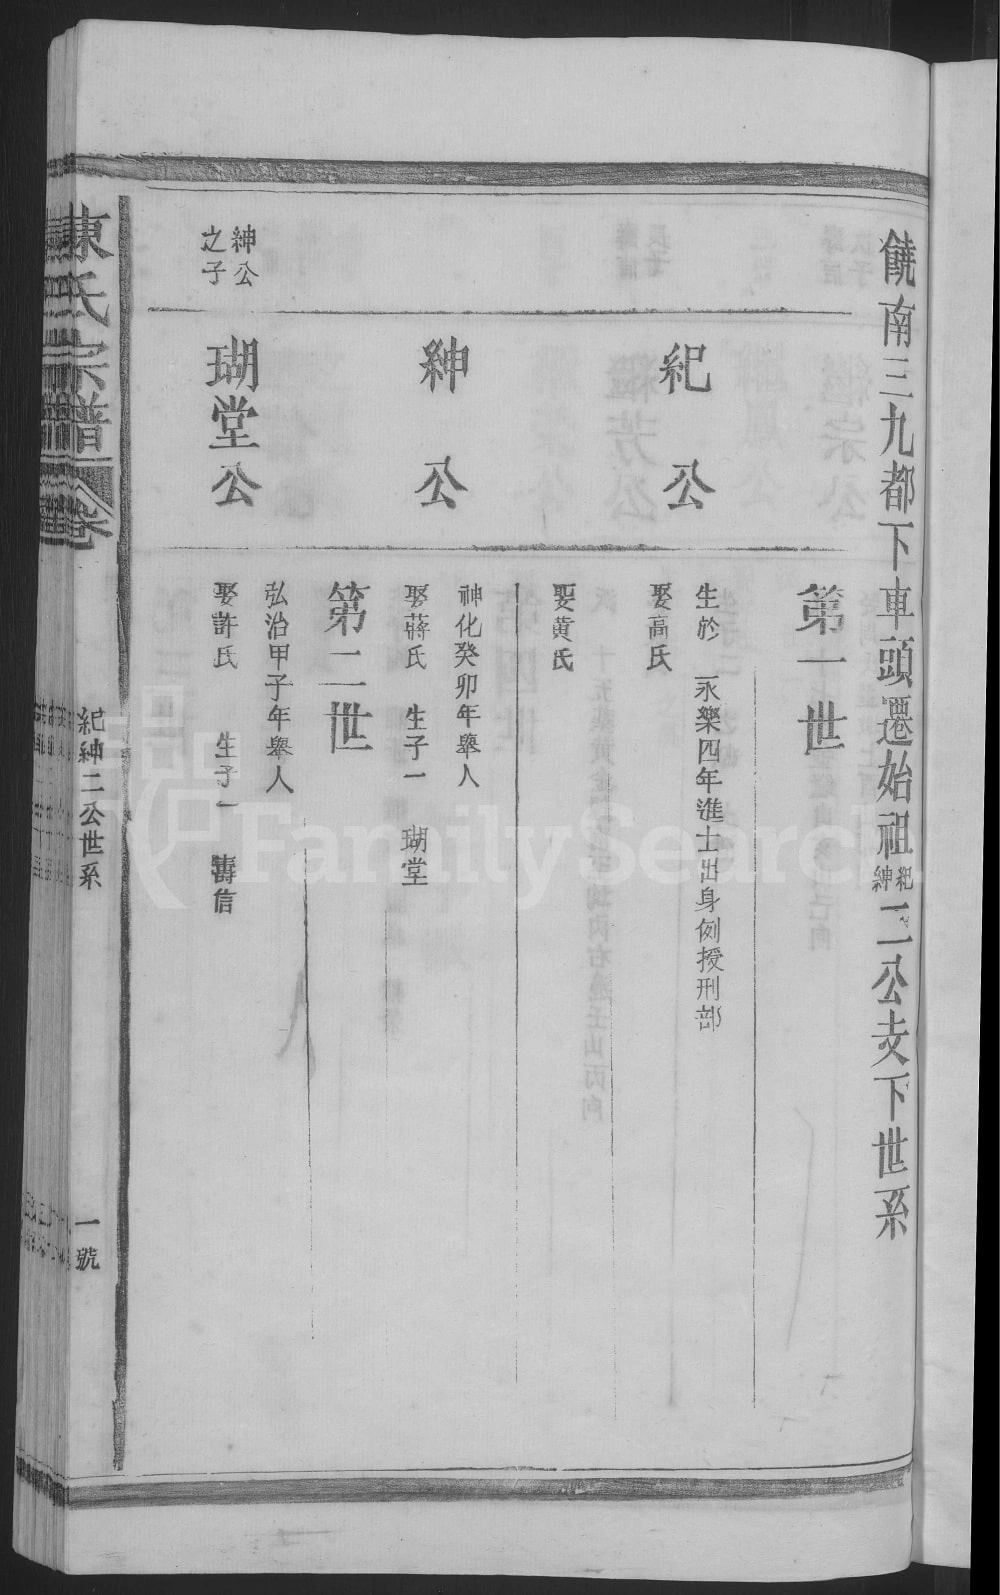 饒南三九都下車頭遷始祖紀紳二公支下世系
第一世
紀公
生於 永樂四年進士出身例授刑部
娶高氏
娶黄氏
紳公
神化癸卯年舉人
娶蔣氏 生子一 瑚堂
第二世
紳公
之子
瑚堂公
弘治甲子年舉人
娶許氏 生子一 壽信
東氏宗譜 卷
紀紳二公世系
一號
FamilySearch